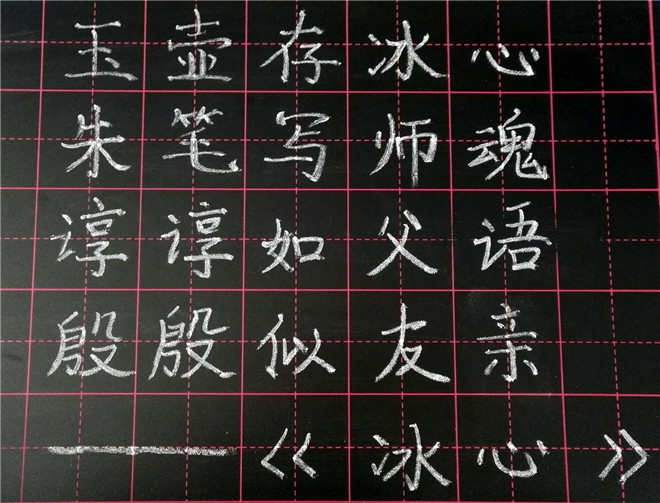 玉壶存冰心
朱笔写师魂
谆谆如父语
殷殷似友亲
——《冰心》